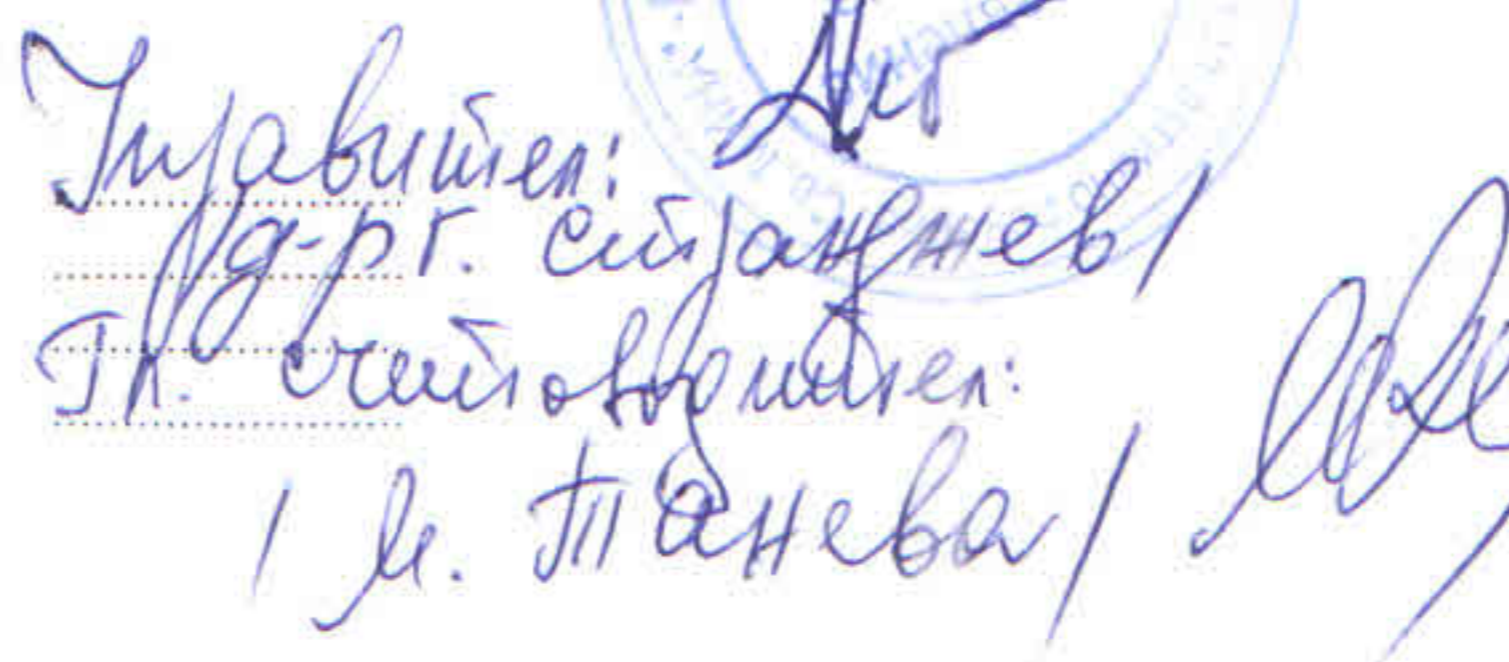 Управител:
/д-р Г. Странджев/
Гл. счетоводител:
/ М. Танева /